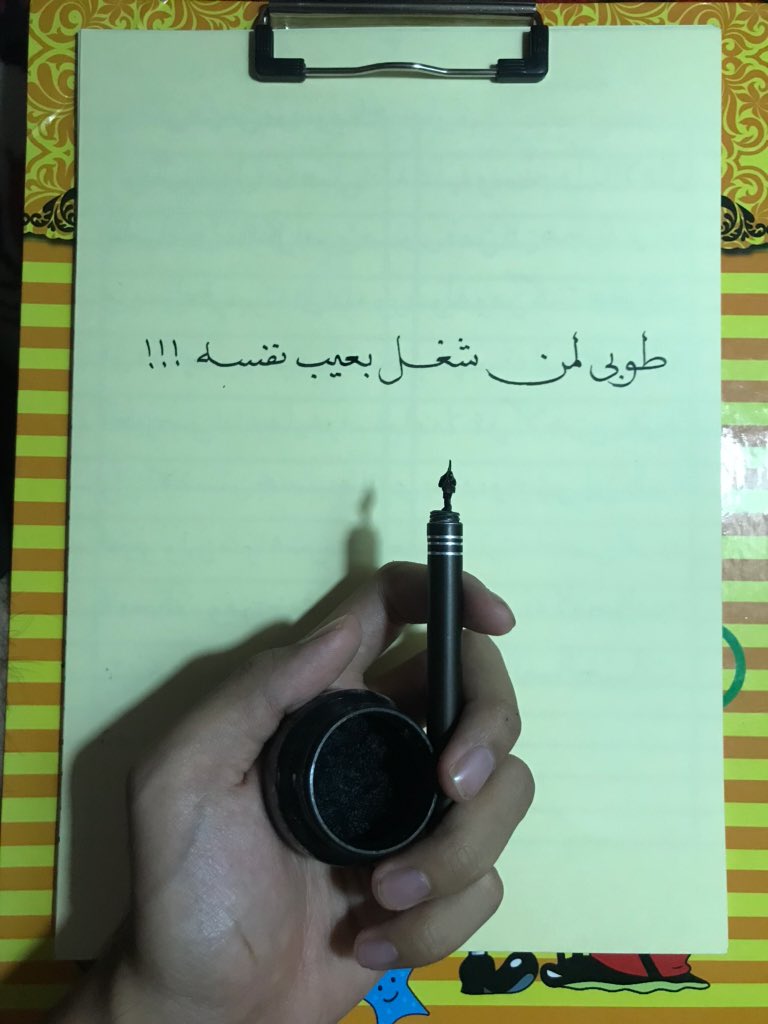 طوبى لمن شغل بعيب نفسه !!!